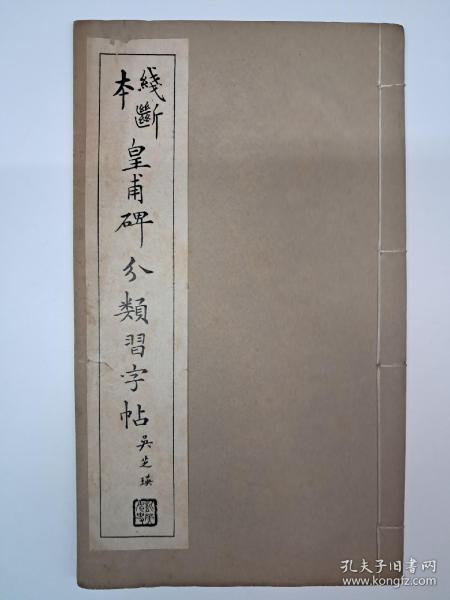 綫斷本
皇甫碑分類習字帖
吳芝瑛
孔夫子旧书网
www.kongfz.com